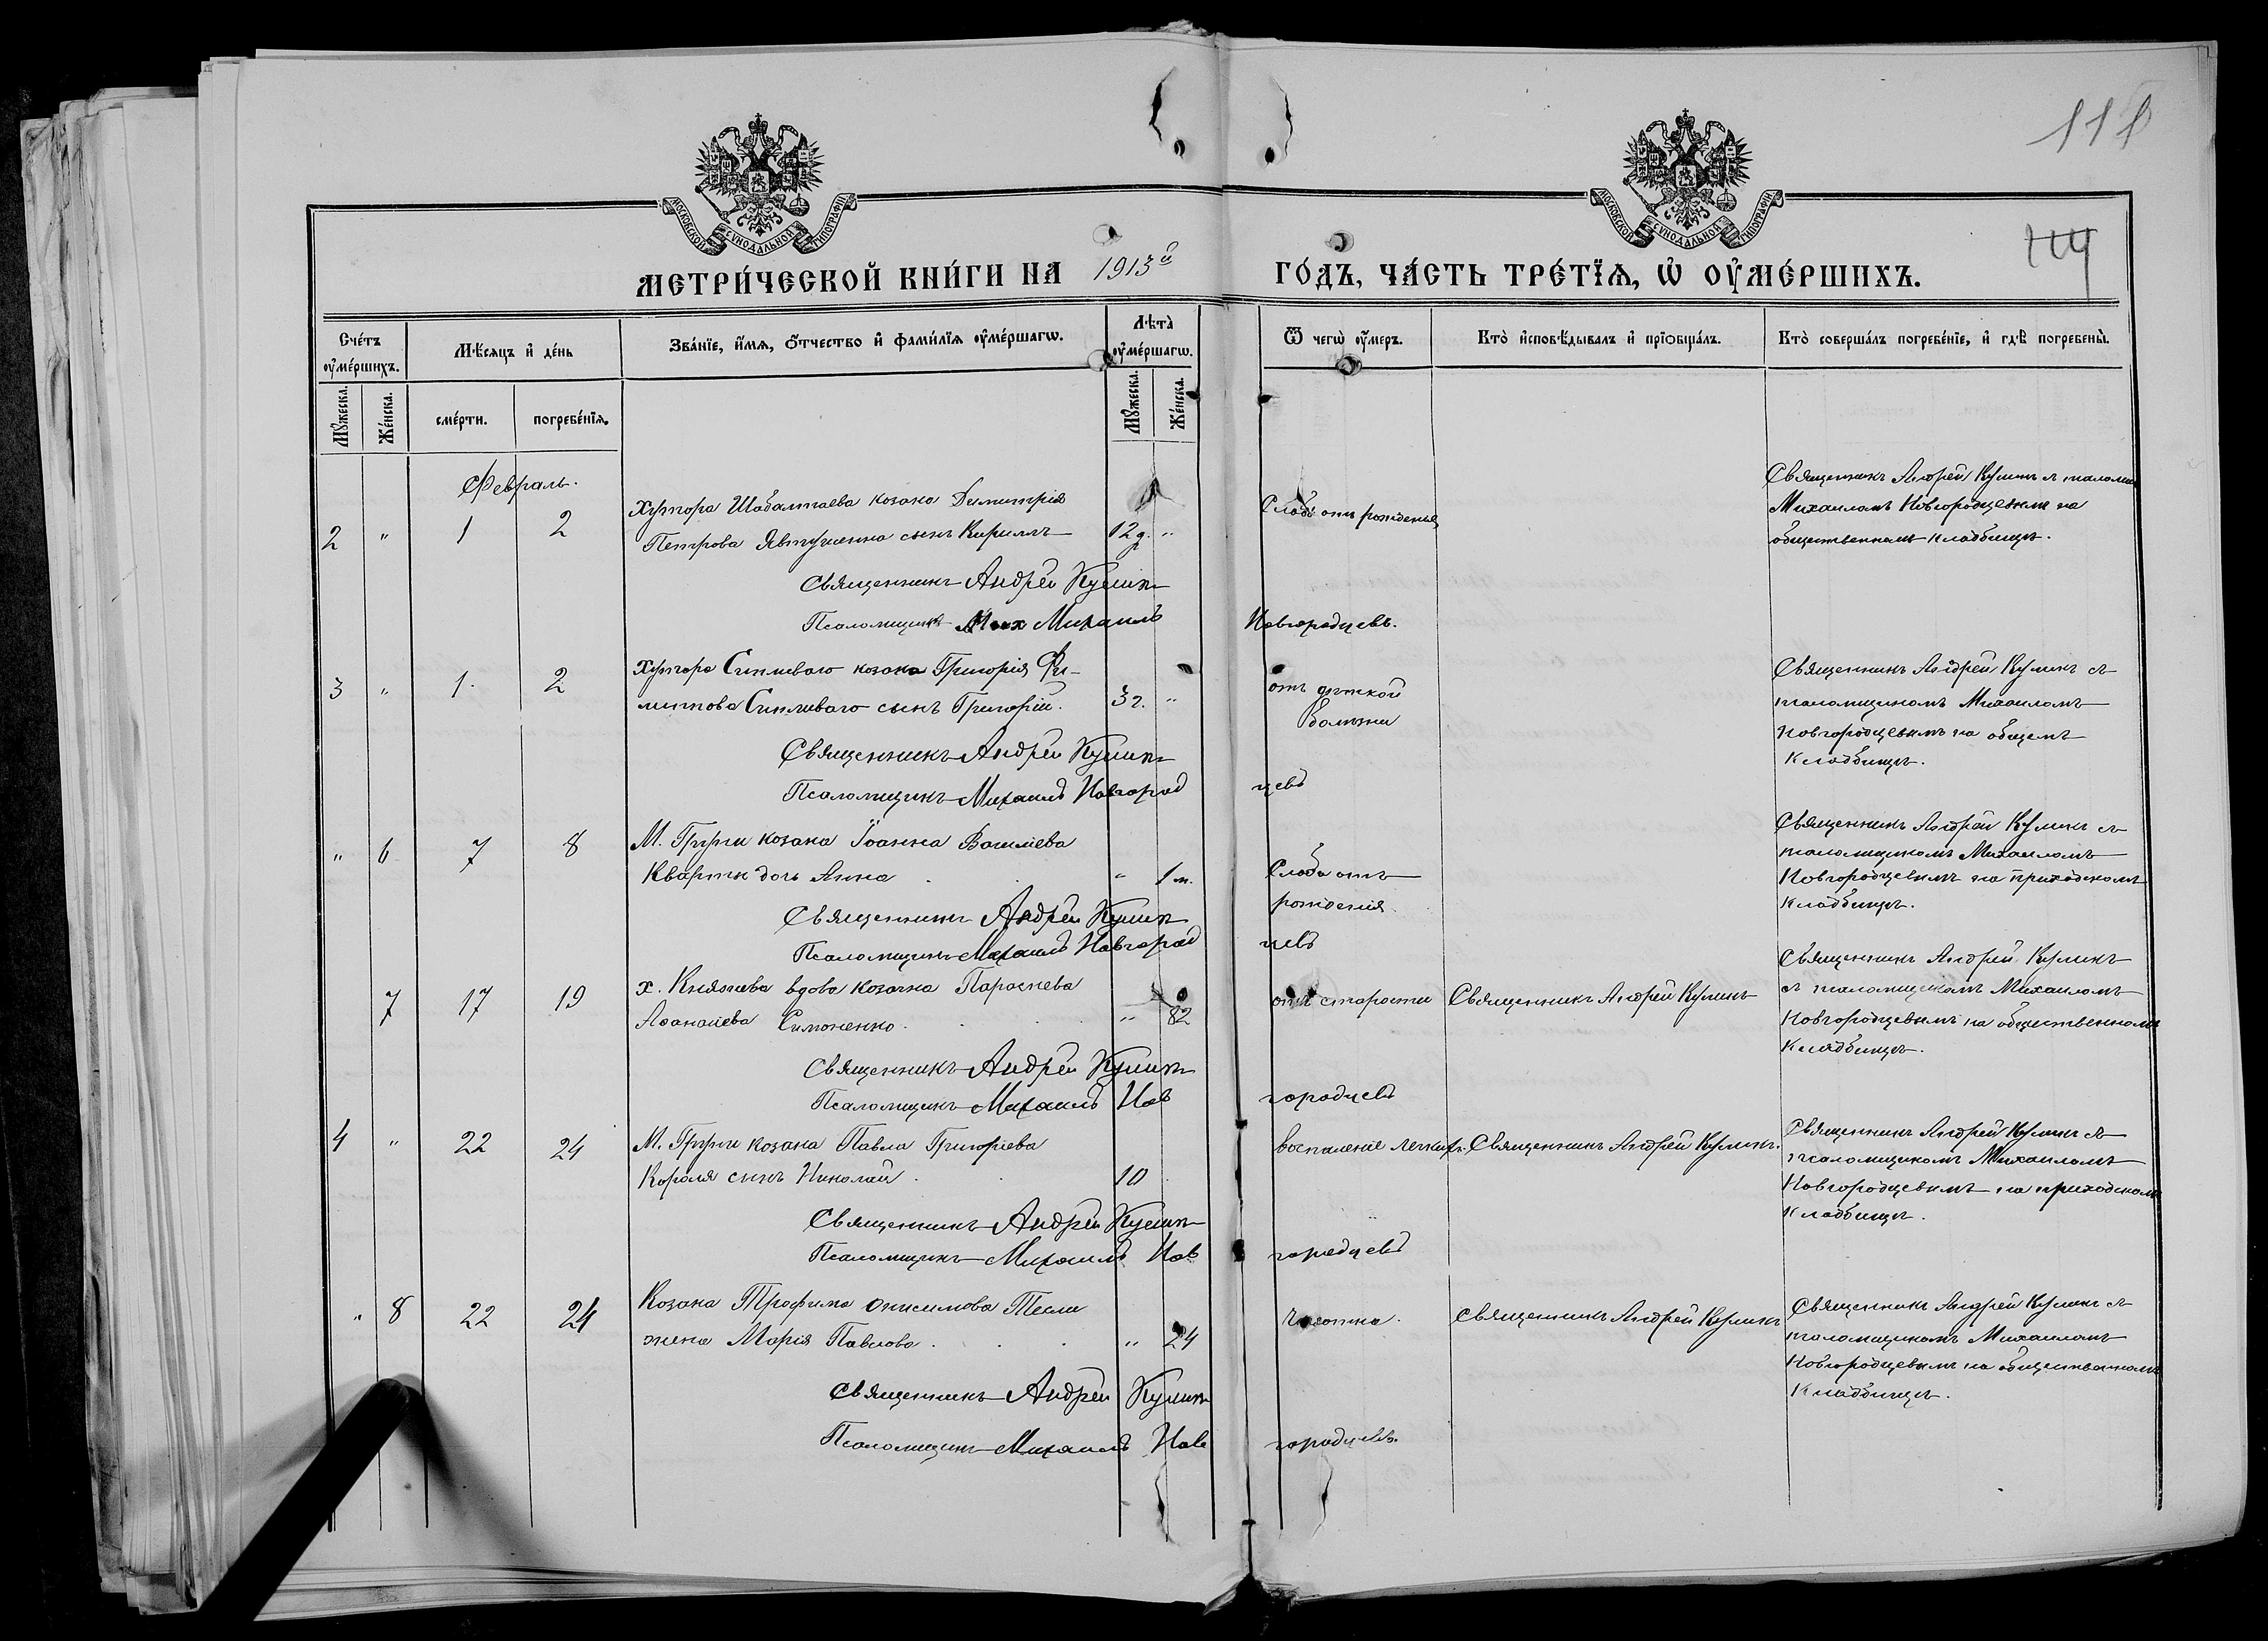 118
МОСКОВСКОЙ СУНОДАЛЬНОЙ ТИПОГРАФІИ
МОСКОВСКОЙ СУНОДАЛЬНОЙ ТИПОГРАФІИ
МЕТРИ́ЧЕСКОЙ КНИ́ГИ НА 1913й ГО́ДЪ, ЧА́СТЬ ТРЕ́ТЇѦ, Ѡ҆ ОУ҆МЕ́РШИХЪ.
Сче́тъ оу҆ме́ршихъ.
Мѣ́сѧцъ и҆ де́нь
Зва́нїе, и҆́мѧ, ѻ҆́тчество и҆ фами́лїѧ оу҆ме́ршагѡ.
Лѣ́та оу҆ме́ршагѡ.
Ѿ чегѡ̀ оу҆́меръ.
Кто̀ и҆сповѣ́дывалъ и҆ прїѡбща́лъ.
Кто̀ соверша́лъ погребе́нїе, и҆ гдѣ̀ погребены̀.
Мꙋ́жеска.
Же́нска.
сме́рти.
погребе́нїѧ.
Мꙋ́жеска.
Же́нска.
Февраль.
2 " 1 2
хутора Шабалтаева козака Димитрія
Петрова Явтушенка сынъ Кириллъ 12 д. "
Слабъ отъ рожденья
Священникъ Андрей Куликъ с псаломщ
Михаиломъ Новгородцевымъ на
общественномъ кладбищѣ.
Священникъ Андрей Куликъ
Псаломщикъ Михаилъ Новгородцевъ.
3 " 1 2
хутора Сипливаго козака Григорія Фи-
липова Сипливаго сынъ Григорій. 3 г. "
отъ дѣтской
болѣзни
Священникъ Андрей Куликъ съ
псаломщикомъ Михаиломъ
Новгородцевымъ на общемъ
кладбищѣ.
Священникъ Андрей Куликъ
Псаломщикъ Михаилъ Новгородцевъ
" 6 7 8
М. Груни козака Іоанна Василіева
Кварты дочь Анна " 1 м.
Слаба отъ
рожденія
Священникъ Андрей Куликъ съ
псаломщикомъ Михаиломъ
Новгородцевымъ на приходскомъ
кладбищѣ.
Священникъ Андрей Куликъ
Псаломщикъ Михаилъ Новгородцевъ
7 17 19
х. Княжева вдова козачка Параскева
Аѳанасіева Симоненко. " 82
отъ старости
Священникъ Андрей Куликъ
Священникъ Андрей Куликъ
съ псаломщикомъ Михаиломъ
Новгородцевымъ на общественномъ
кладбищѣ.
Священникъ Андрей Куликъ
Псаломщикъ Михаилъ Новгородцевъ
4 " 22 24
М. Груни козака Павла Григоріева
Короля сынъ Николай 10
воспаленіе легкихъ.
Священникъ Андрей Куликъ.
Священникъ Андрей Куликъ съ
псаломщикомъ Михаиломъ
Новгородцевымъ на приходскомъ
кладбищѣ.
Священникъ Андрей Куликъ
Псаломщикъ Михаилъ Новгородцевъ
" 8 22 24
Козака Трофима Онисимова Тесли
жена Марія Павлова. " 24
Чахотка.
Священникъ Андрей Куликъ
Священникъ Андрей Куликъ съ
псаломщикомъ Михаиломъ
Новгородцевымъ на общественномъ
кладбищѣ.
Священникъ Андрей Куликъ
Псаломщикъ Михаилъ Новгородцевъ.